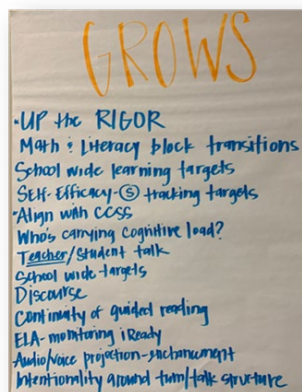 GROWS
·UP the RIGOR
Math & Literacy block transitions
School wide learning targets
Self-Efficacy-Ⓢ tracking targets
·Align with CCSS
Who's carrying cognitive load?
Teacher/student talk
School wide targets
Discourse
Continuity of guided reading
ELA-monitoring iReady
Audio/voice projection-enchancement
Intentionality around turn/talk structure